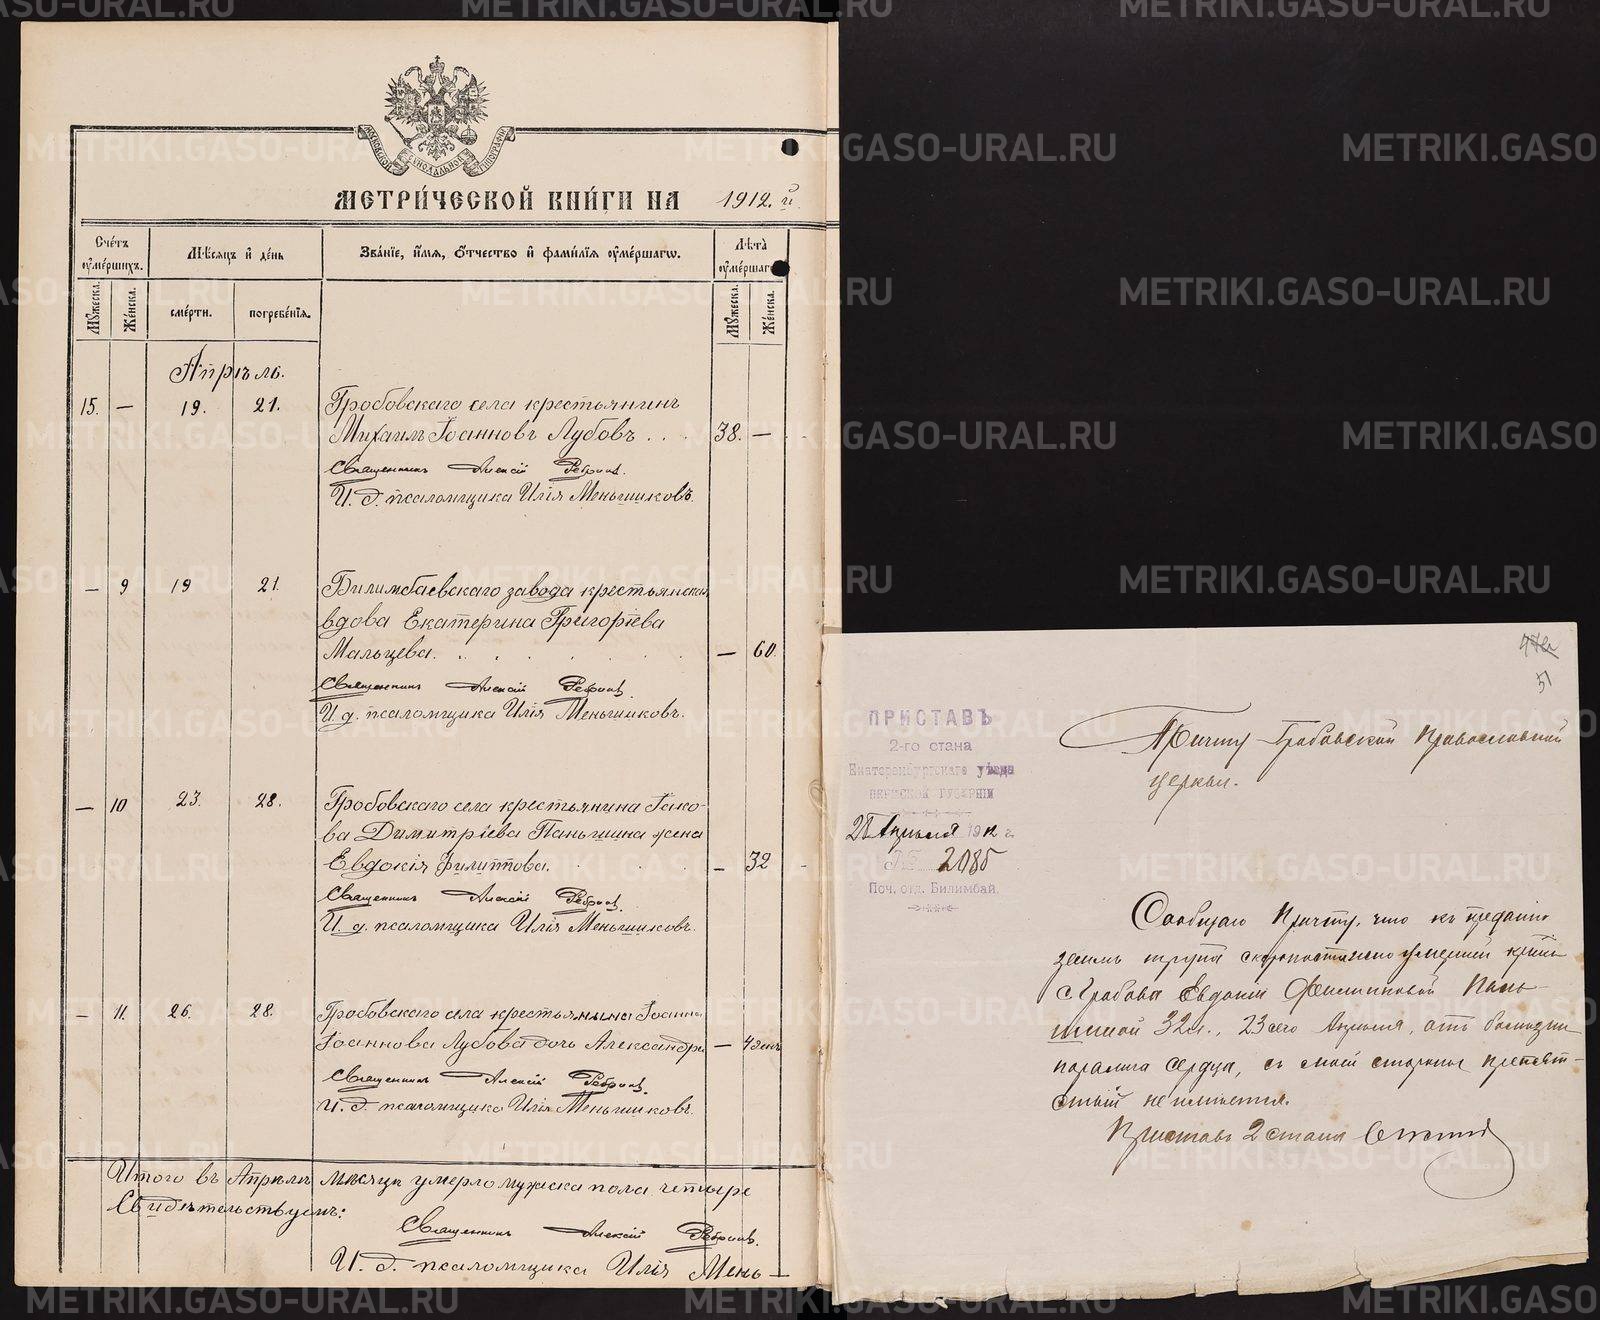 МЕТРИЧЕСКОЙ КНИГИ НА 1912.й
Счетъ умершихъ.
Мѣсяцъ и день
Званіе, имя, отчество и фамилія умершаго.
Лѣта умершаг
Мужеска.
Женска.
смерти.
погребенія.
Мужеска.
Женска.
Апрѣль.
15. — 19. 21. Гробовскаго села крестьянинъ
Михаилъ Іоанновъ Лубовъ . . . 38. —
Священникъ Алексій
И. д. псаломщика Илія Меньшиковъ.
— 9 19 21. Билимбаевскаго завода крестьянская
вдова Екатерина Григоріева
Мальцева. — 60.
Священникъ Алексій
И. д. псаломщика Илія Меньшиковъ.
— 10 23. 28. Гробовскаго села крестьянина Іако-
ва Димитріева Паньшина жена
Евдокія Филиппова. — 32
Священникъ Алексій
И. д. псаломщика Илія Меньшиковъ.
— 11. 26. 28. Гробовскаго села крестьянина Іоанна
Іоаннова Лубова дочь Александра —
Священникъ Алексій
И. д. псаломщика Илія Меньшиковъ.
Итого въ Апрѣлѣ мѣсяцѣ умерло мужска пола четыре
Свидѣтельствуемъ:
Священникъ Алексій
И. д. псаломщика Илія Мень-
51
ПРИСТАВЪ
2-го стана
Екатеринбургскаго уѣзда
ПЕРМСКОЙ ГУБЕРНІИ
Апрѣля 1912 г.
№ 2085
Поч. отд. Билимбай.
Причту Гробовской Православной
церкви.
Сообщаю Причту, что къ преданію
землѣ трупа скоропостижно умершей
с. Гробова Евдокіи Филипповой Пань-
шиной 32 л., 23 сего Апрѣля, отъ
паралича сердца, съ моей стороны препят-
ствій не имѣется.
Приставъ 2 стана
METRIKI.GASO-URAL.RU